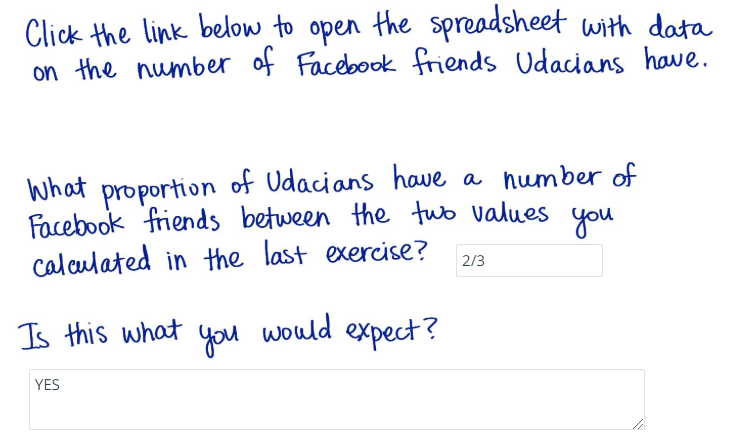 Click the link below to open the spreadsheet with data
on the number of Facebook friends Udacians have.
What proportion of Udacians have a number of
Facebook friends between the two values you
calculated in the last exercise? 2/3
Is this what you would expect?
YES